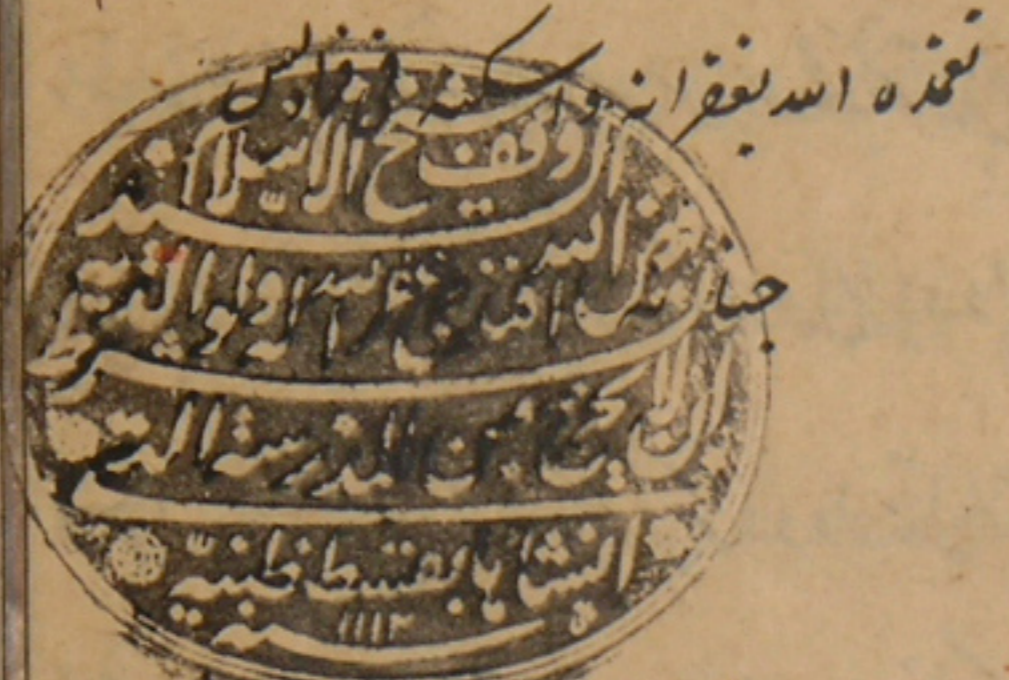 تغمده الله بغفرانه واسكنه فى فراديس
وقف شيخ الاسلام السيد
فيض الله افندى غفر الله له ولوالديه بشرط
ان لا يخرج من المدرسة التى
انشأها بقسطنطينية
سنة ١١١٣